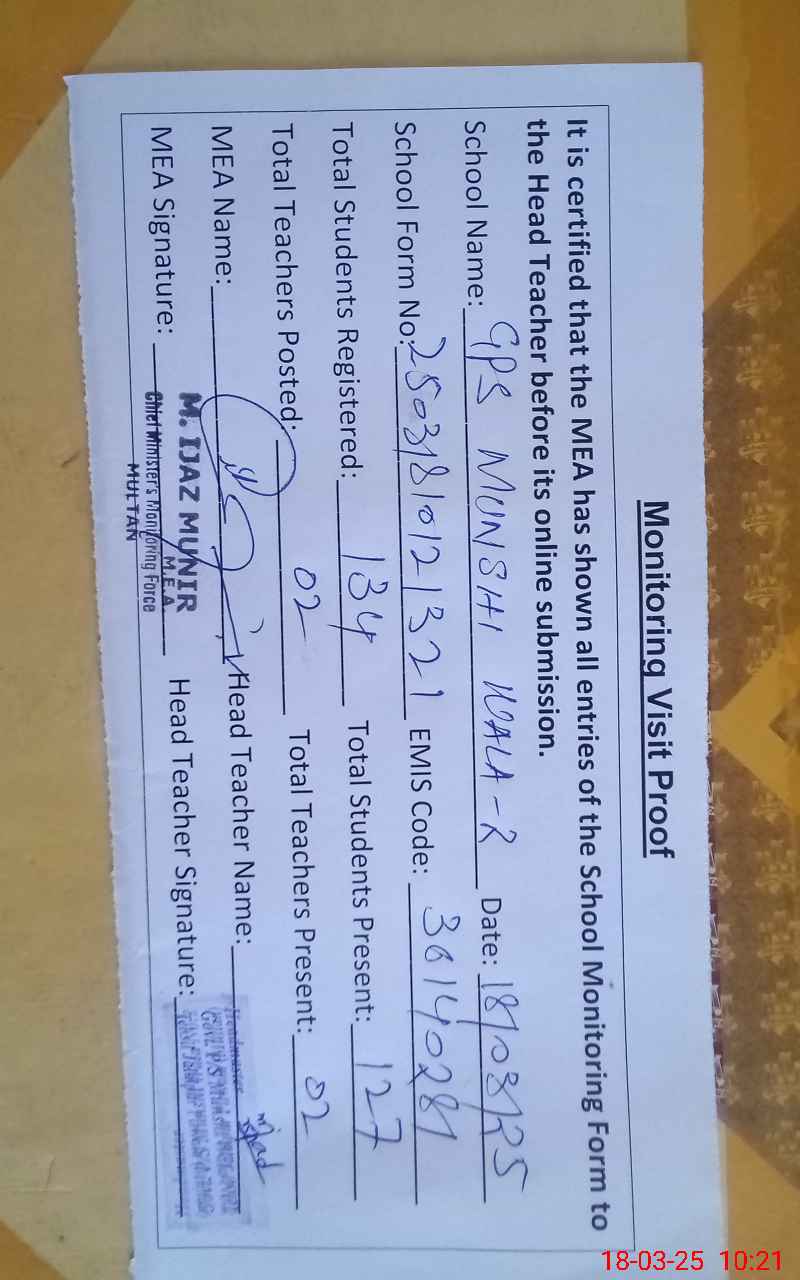 Monitoring Visit Proof
It is certified that the MEA has shown all entries of the School Monitoring Form to
the Head Teacher before its online submission.
School Name: GPS MUNSHI WALA-R Date: 18/03/25
School Form No: 25031810121321 EMIS Code: 36140281
Total Students Registered: 134 Total Students Present: 127
Total Teachers Posted: 02 Total Teachers Present: 02
MEA Name: Head Teacher Name:
MEA Signature: Head Teacher Signature:
M. IJAZ MUNIR
M.E.A
Chief Minister's Monitoring Force
MULTAN
Headmaster
Govt. P/S
18-03-25 10:21